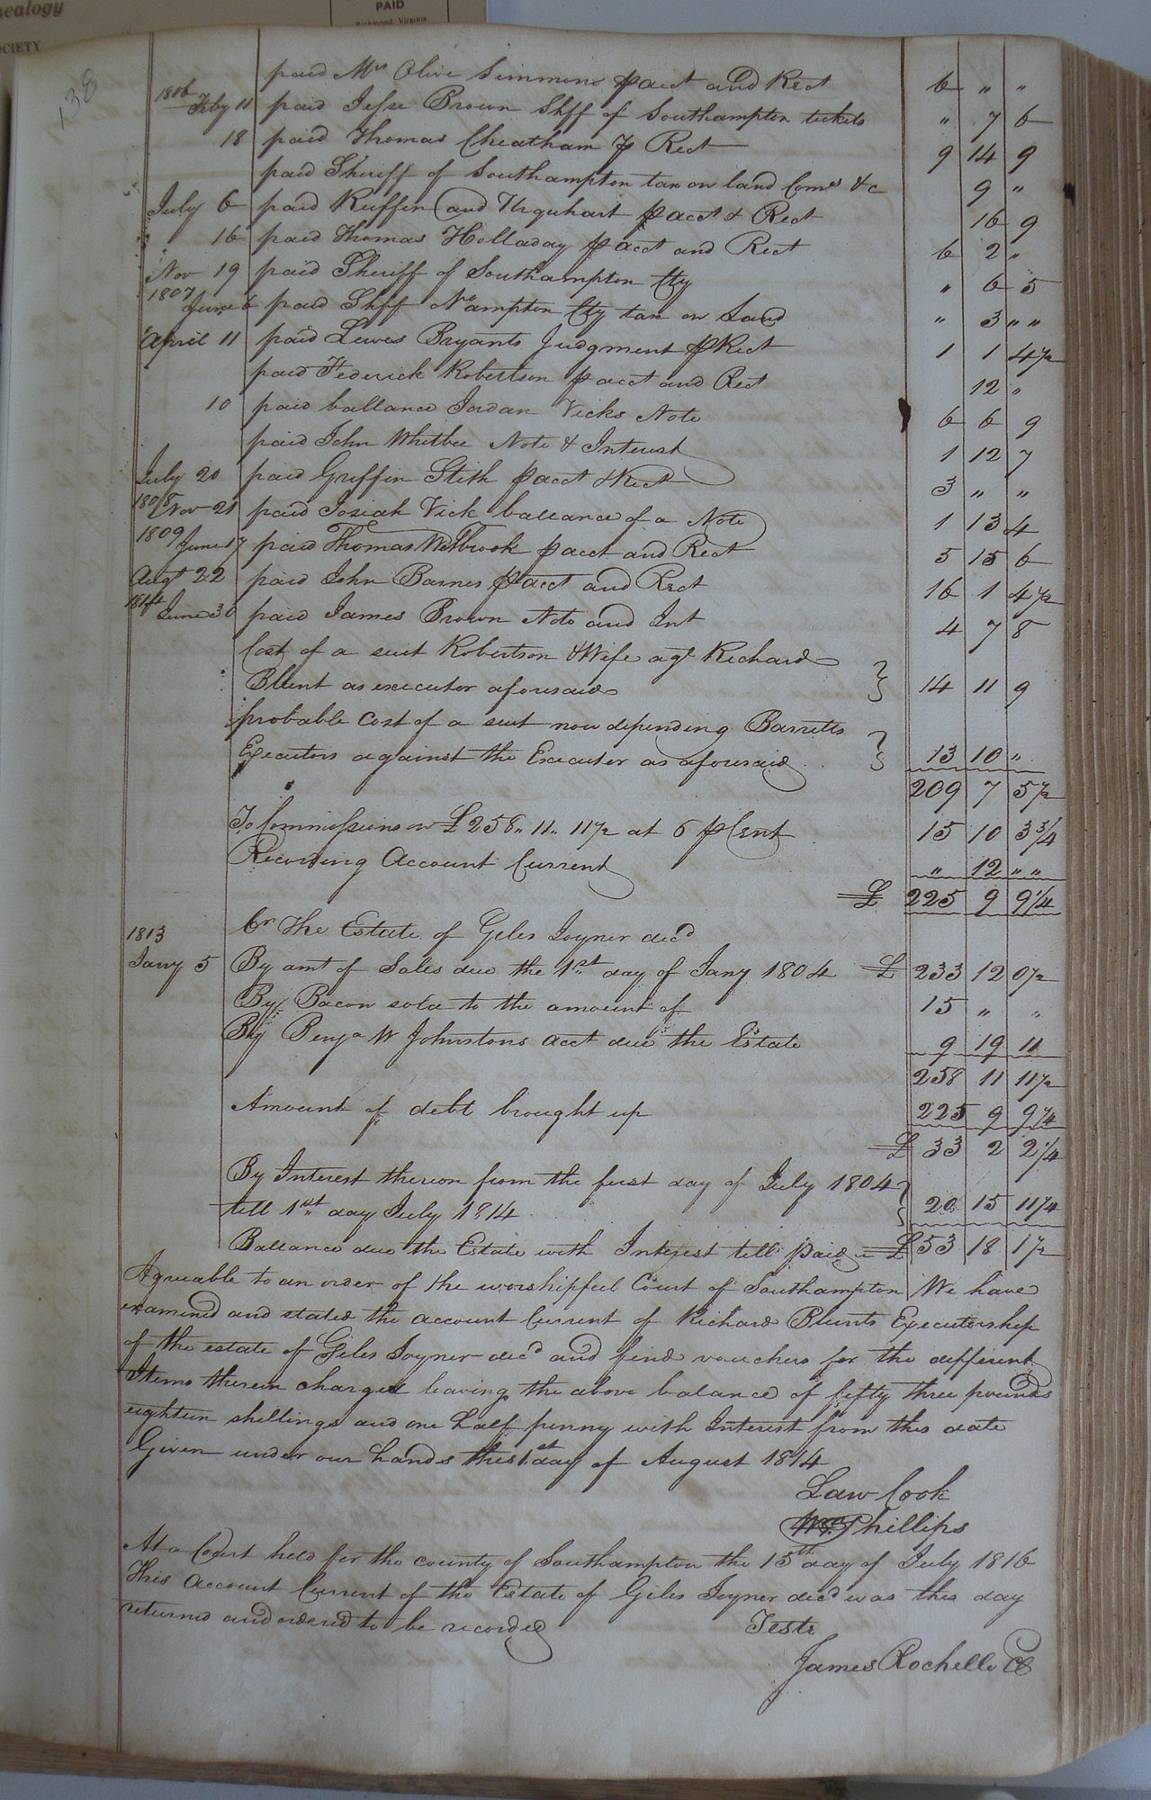 nealogy
OCIETY
PAID
Richmond, Virginia
138
paid Mrs Olive Simmons p acct and Rect 6 " "
1806 Feby 11 paid Jesse Brown Shff of Southampton tickets " 7 6
18 paid Thomas Cheatham p Rect 9 14 9
paid Sheriff of Southampton tax on land &c 9 "
July 6 paid Ruffin and Urquhart p acct & Rect 16 9
16 paid Thomas Holladay p acct and Rect 6 2 "
Nov 19 paid Sheriff of Southampton Cty " 6 5
1807 June 6 paid Shff Nohampton Cty tax on Land " 3 " "
April 11 paid Lewes Bryants Judgment p Rect 1 1 4 1/2
paid Federick Robertson p acct and Rect 12 "
10 paid ballance Jordan Vicks Note 6 6 9
paid John Whitbee Note & Interest 1 12 7
July 20 paid Griffin Stith p acct & Rect 3 " "
1808 Nov 21 paid Josiah Vick ballance of a Note 1 13 4
1809 June 17 paid Thomas Westbrook p acct and Rect 5 15 6
Augt 22 paid John Barnes p acct and Rect 16 1 4 1/2
1814 June 30 paid James Brown Note and Int 4 7 8
Cost of a suit Robertson & Wife agt Richard
Blunt as executor aforesaid 14 11 9
probable Cost of a suit now depending Barretts
Executors against the Executor as aforesaid 13 10 "
209 7 5 1/2
To Commissions on £258 " 11 " 11 1/2 at 6 p Cent 15 10 3 3/4
Recording Account Current " 12 " "
£ 225 9 9 1/4
1813 Cr The Estate of Giles Joyner decd
Jany 5 By amt of Sales due the 1st day of Jany 1804 £ 233 12 0 1/2
By Bacon sold to the amount of 15 " "
By Benja W Johnstons acct due the Estate 9 19 11
258 11 11 1/2
Amount of debt brought up 225 9 9 1/4
£ 33 2 2 1/4
By Interest thereon from the first day of July 1804
till 1st day July 1814 20 15 11 1/4
Ballance due the Estate with Interest till paid £ 53 18 1 1/2
Agreable to an order of the worshipfeel Court of Southampton We have
examined and stated the account Current of Richard Blunts Executorship
of the estate of Giles Joyner decd and find vouchers for the different
Items therein charged leaving the above balance of fifty three pounds
eighteen shillings and one half penny with Interest from this date
Given under our hands this 1st day of August 1814
Law Cook
Phillips
At a Court held for the county of Southampton the 15th day of July 1816
This Account Current of the Estate of Giles Joyner decd was this day
returned and ordered to be recorded Teste
James Rochelle CC